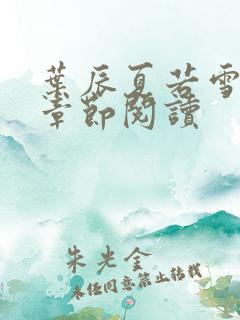 葉辰夏若雪
章節閱讀
朱光金
未經同意禁止轉載